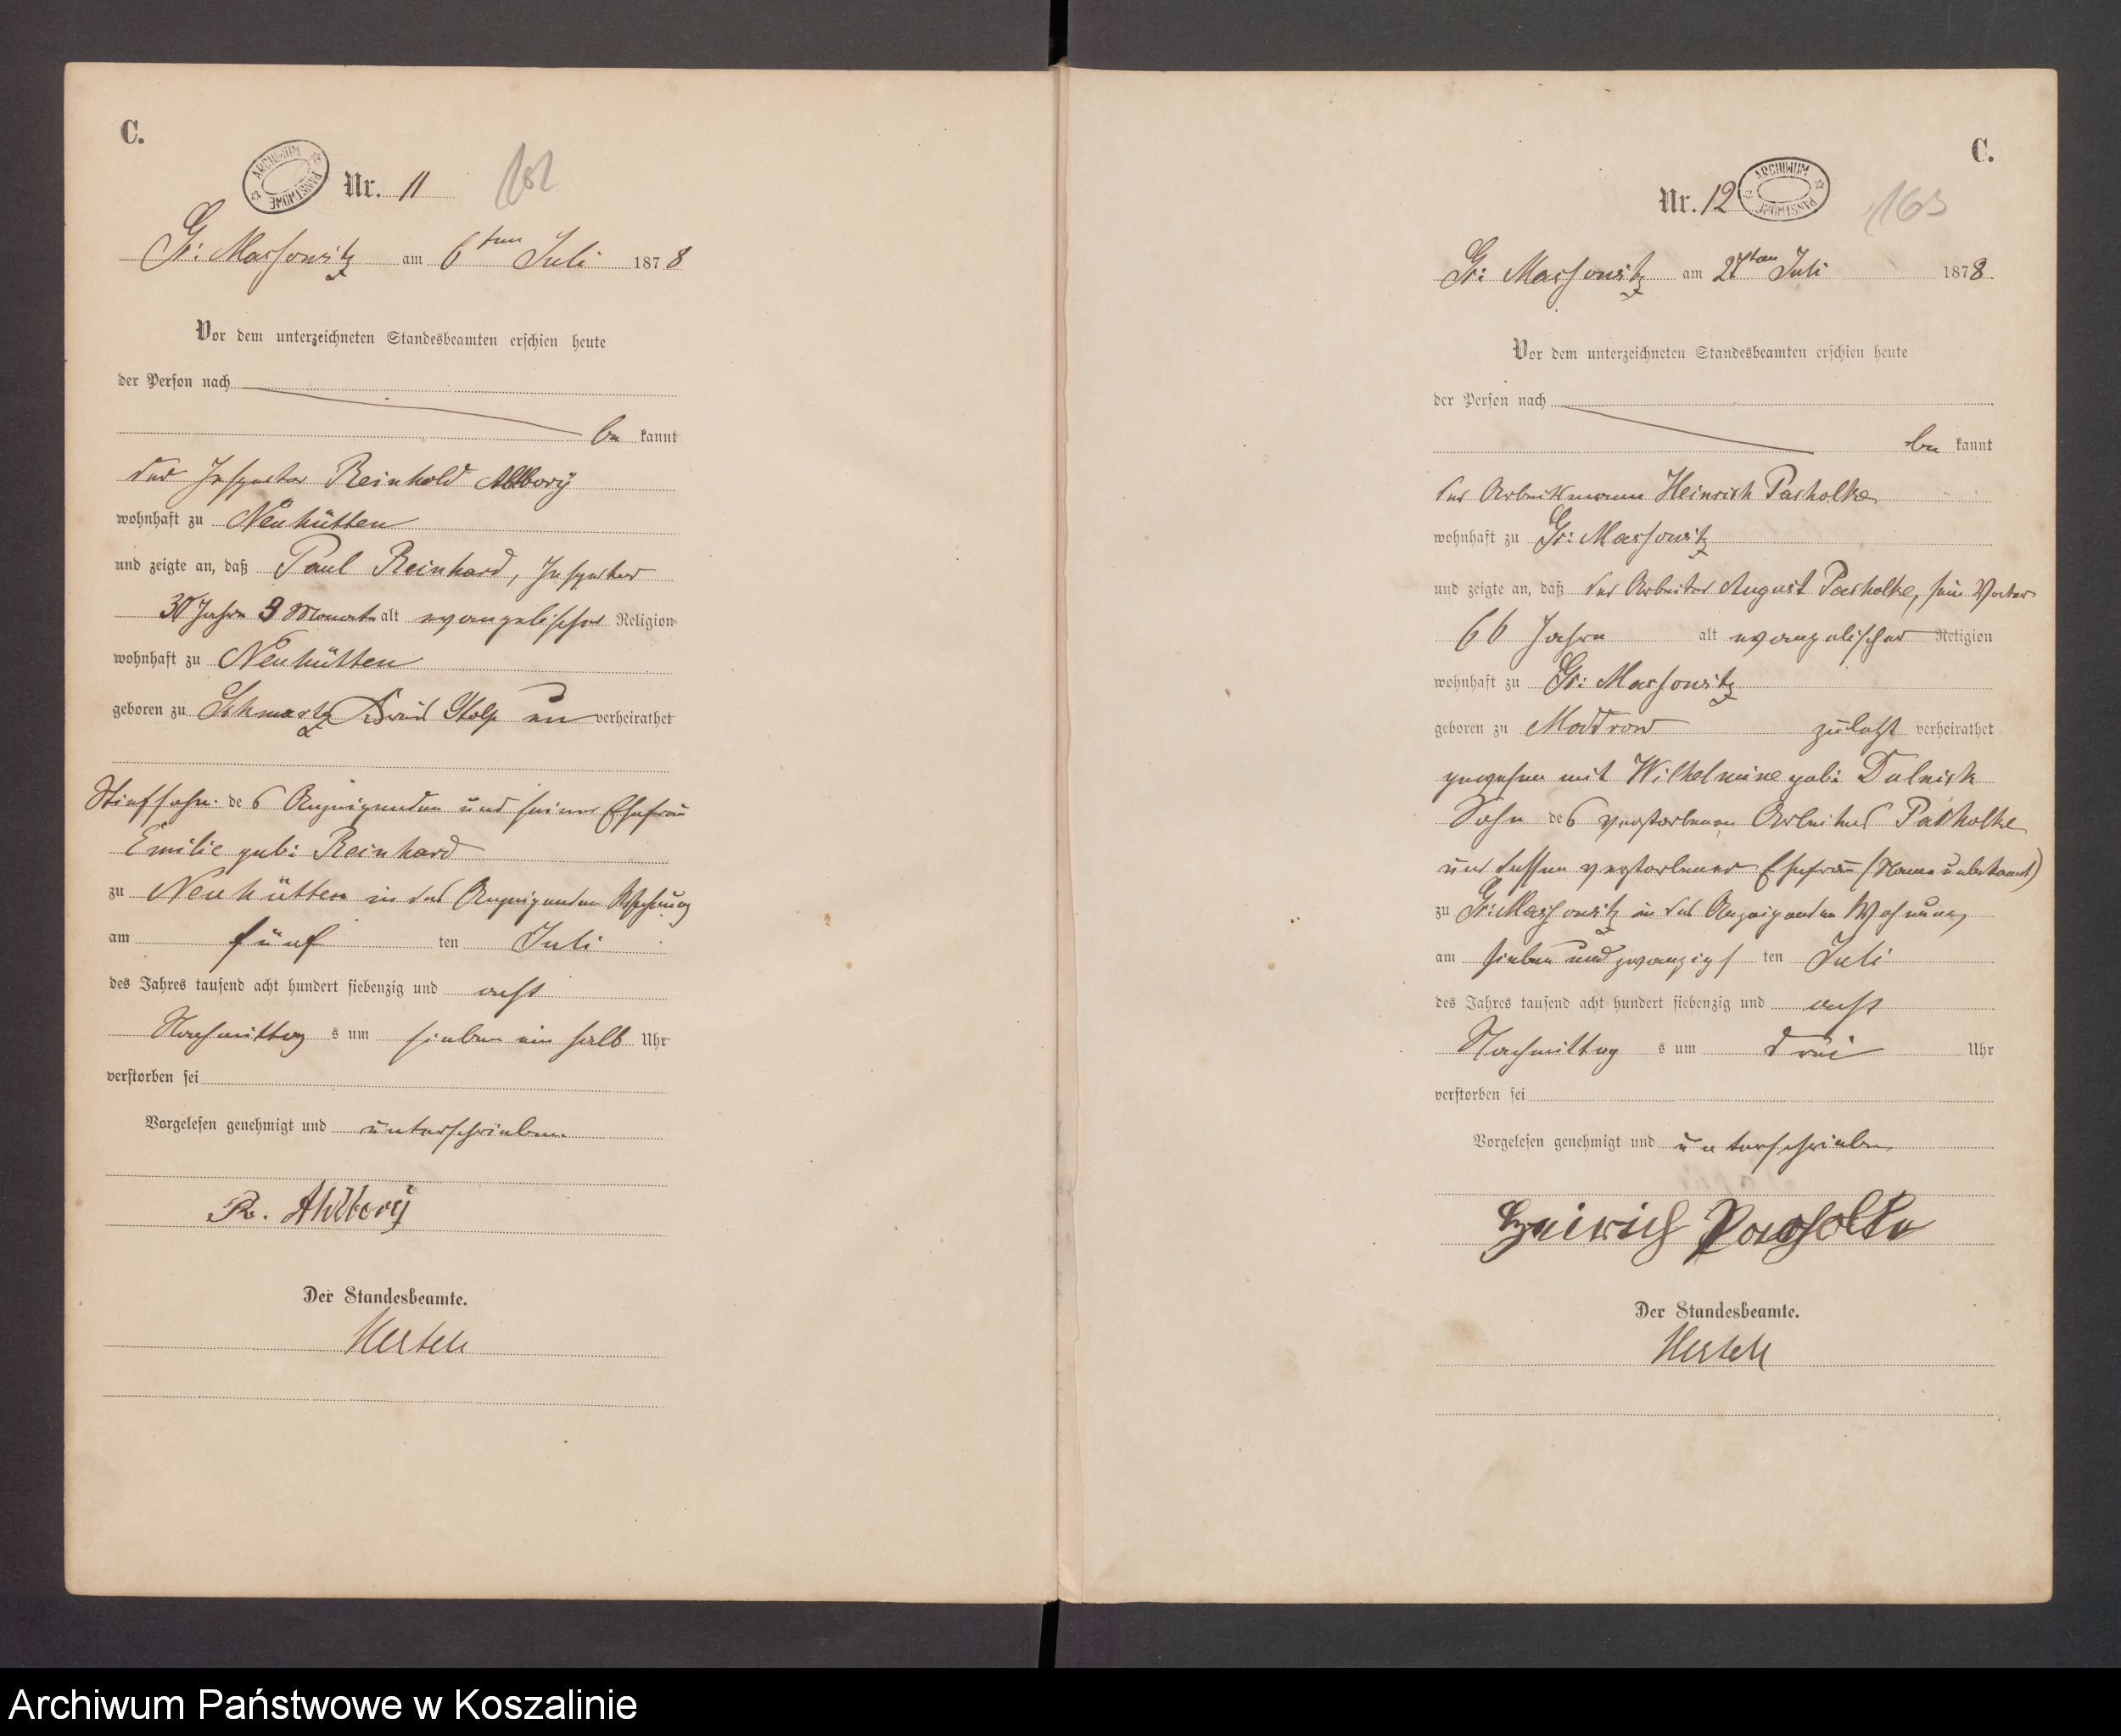 C.
ARCHIWUM PAŃSTWOWE
Nr. 11
Gr: Massowitz am 6ten Juli 1878
Vor dem unterzeichneten Standesbeamten erschien heute
der Person nach
be kannt
der Inspector Reinhold
wohnhaft zu Neuhütten
und zeigte an, daß Paul Reinhard, Inspector
30 Jahre 3 Monate alt evangelischer Religion
wohnhaft zu Neuhütten
geboren zu Schmaatz Kreis Stolp un verheirathet
Stiefsohn des Anzeigenden und seiner Ehefrau
Emilie geb: Reinhard
zu Neuhütten in des Anzeigenden Wohnung
am fünf ten Juli
des Jahres tausend acht hundert siebenzig und acht
Nachmittag s um sieben ein halb Uhr
verstorben sei
Vorgelesen genehmigt und unterschrieben
R.
Der Standesbeamte.
C.
Nr. 12
ARCHIWUM PAŃSTWOWE
163
Gr: Massowitz am 27ten Juli 1878.
Vor dem unterzeichneten Standesbeamten erschien heute
der Person nach
be kannt
der Arbeitsmann Heinrich Pasholke
wohnhaft zu Gr: Massowitz
und zeigte an, daß der Arbeiter August Pasholke, sein Vater
66 Jahre alt evangelischer Religion
wohnhaft zu Gr: Massowitz
geboren zu Moddrow zuletzt verheirathet
gewesen mit Wilhelmine geb:
Sohn des verstorbenen Arbeiters Pasholke
und dessen verstorbener Ehefrau (Name unbekannt)
zu Gr: Massowitz in des Anzeigenden Wohnung
am sieben und zwanzigs ten Juli
des Jahres tausend acht hundert siebenzig und acht
Nachmittag s um drei Uhr
verstorben sei
Vorgelesen genehmigt und unterschrieben
Heinrich Pasholke
Der Standesbeamte.
Archiwum Państwowe w Koszalinie